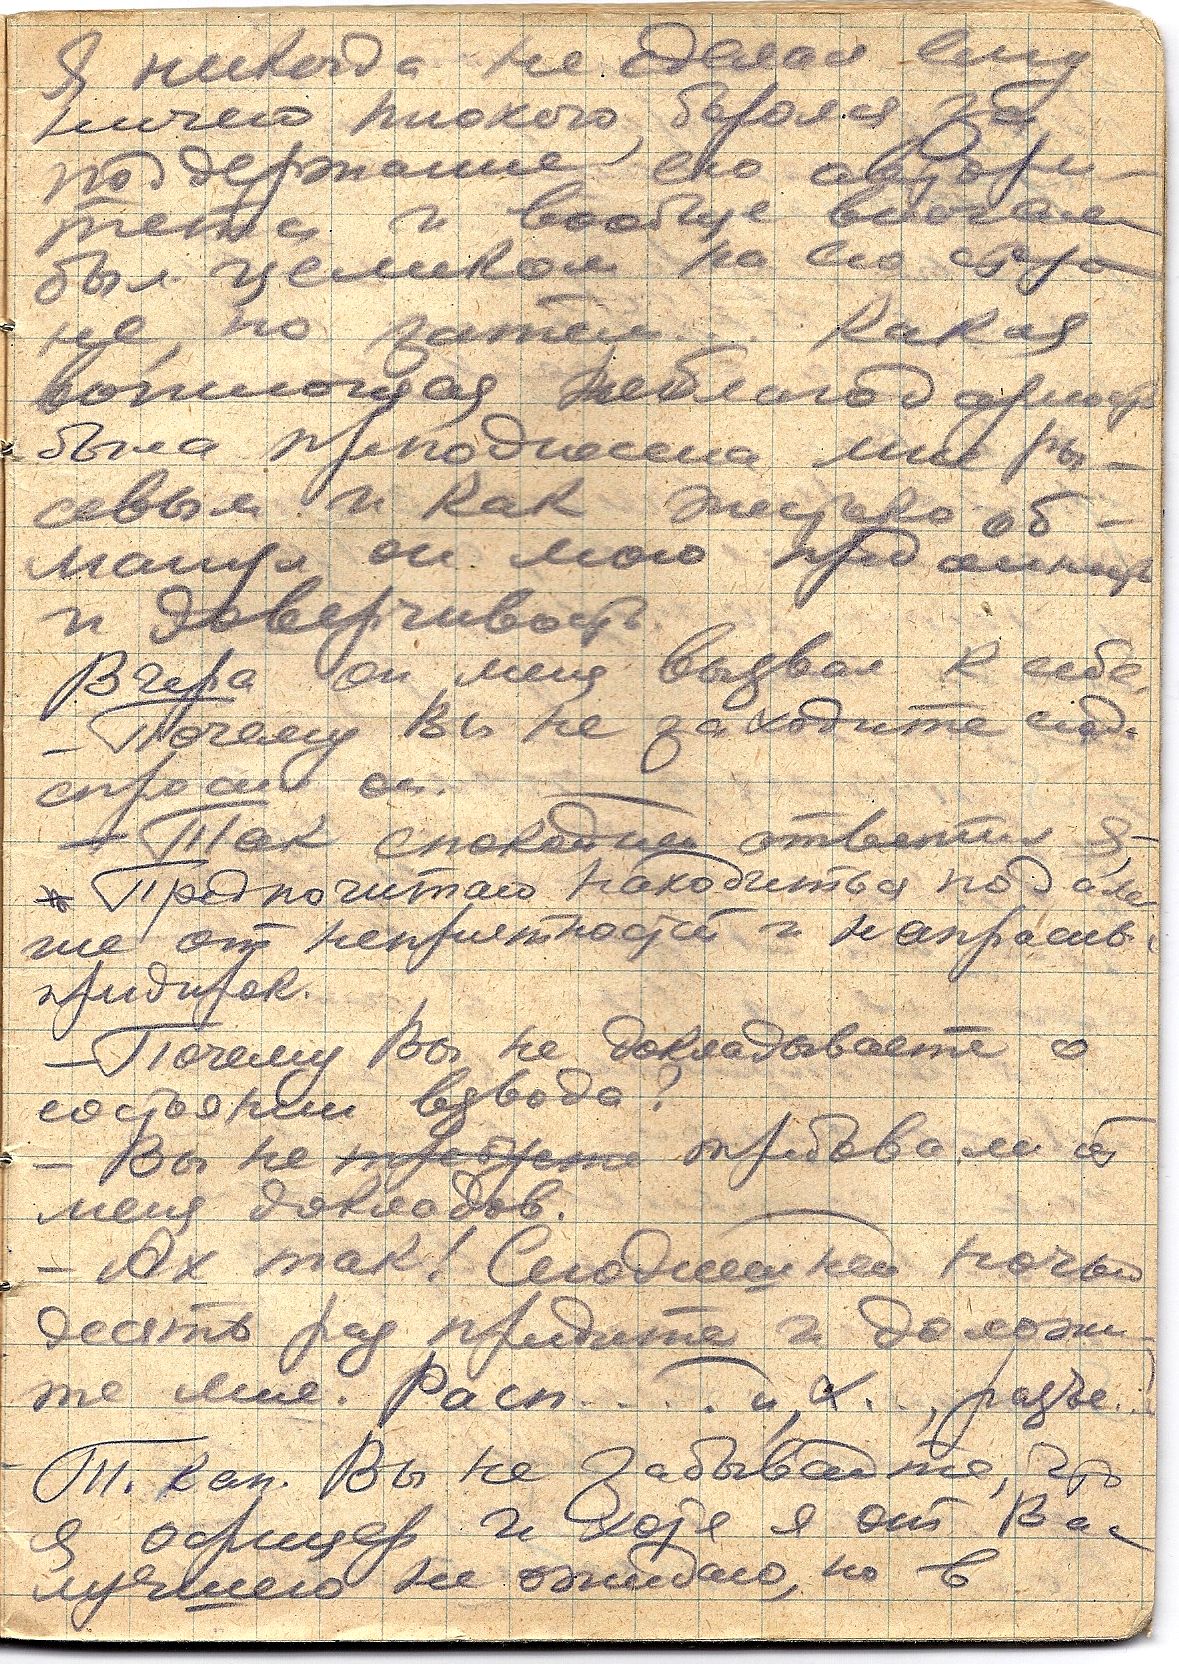 Я никогда не сделал ему
ничего плохого, боролся за
поддержание его автори-
тета и вообще вначале
был целиком на его сторо-
не, но затем... Какая
вопиющая неблагодарность
была преподнесена мне Ры-
севым и как жестоко об-
манул он мою преданность
и доверчивость.
Вчера он меня вызвал к себе.
- Почему Вы не заходите сюда
спросил он.
- Так спокойней ответил я,-
Предпочитаю находиться подаль
ше от неприятностей и напрасных
придирок.
- Почему Вы не докладываете о
состоянии взвода?
- Вы не требуете требовали от
меня докладов.
- Ах так! Сегодняшней ночью
десять раз придите и доложи-
те мне. Расп.... й, х..., разъе...!
Т. кап. Вы не забывайте, что
я офицер и хотя я от Вас
лучшего не ожидаю, но в